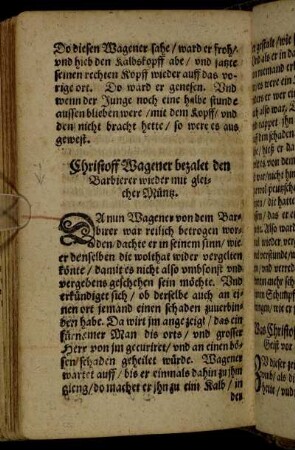 Do diesen Wagener sahe / ward er froh /
vnd hieb den Kalbskopff abe / vnd satzte
seinen rechten Kopff wieder auff das vo-
rige ort. Do ward er genesen. Vnd
wenn der Junge noch eine halbe stunde
aussen blieben were / mit dem Kopff / vnd
den nicht bracht hette / so were es aus
gewest.
Christoff Wagener bezalet den
Barbierer wieder mit glei-
cher Müntz.
DA nun Wagener von dem Bar-
birer war reilich betrogen wor-
den / dachte er in seinem sinn / wie
er denselben die wolthat wider vergelten
könte / damit es nicht also vmbsonst vnd
vergebens geschehen sein möchte. Vnd
erkündiget sich / ob derselbe auch an ei-
nen ort jemand einen schaden zuuerbin-
den habe. Da wirt jm angezeigt / das ein
fürneimer Man dis orts / vnd grosser
Herr von jm gecuriret / vnd an einen bö-
sen schaden geheilet würde. Wagener
wartet auff / bis er einmals dahin zu jhm
gieng / do machet er jhn zu ein Kalb / in
den